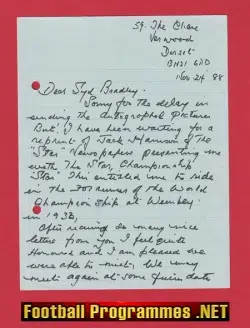 59. The Chase
Verwood
Dorset
BH31 6
Nov 24 88
Dear Syd Bradley.
Sorry for the delay in
sending the Autographed Picture
But. I have been waiting for a
reprint of Jack Mannion of the
"Star" Newspapers presenting me
with The Star, Championship
"Star" This entitled me to ride
in the Forerunner of the World
Championship at Wembley
in 1932,
After receiving so many nice
letters from you I feel quite
Honoured and I am pleased we
were able to meet. We may
meet again at some future date
Football Programmes .NET